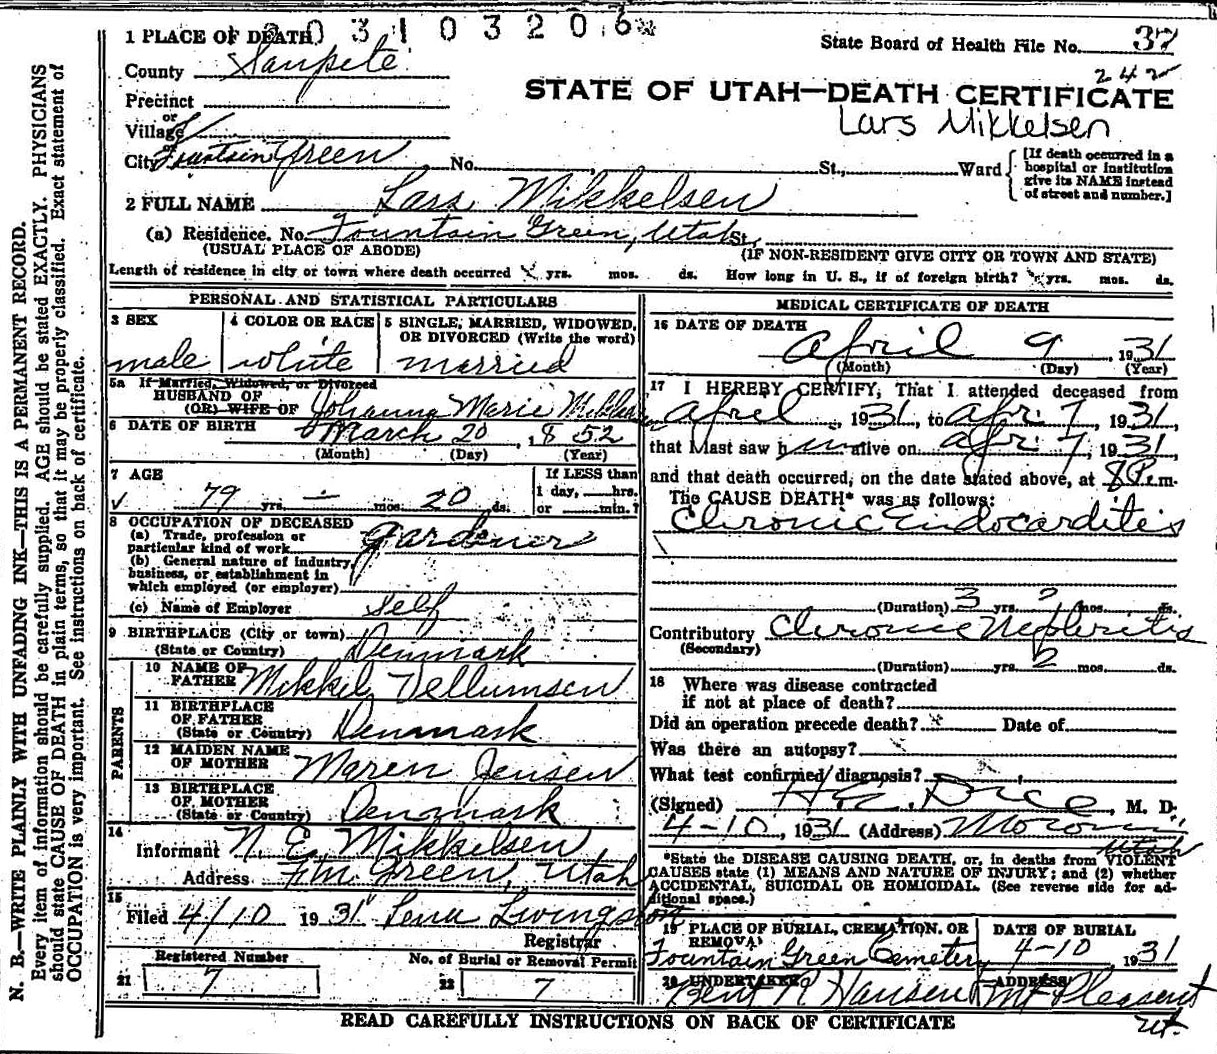 N. B.—WRITE PLAINLY WITH UNFADING INK—THIS IS A PERMANENT RECORD.
Every item of information should be carefully supplied. AGE should be stated EXACTLY. PHYSICIANS
should state CAUSE OF DEATH in plain terms, so that it may be properly classified. Exact statement of
OCCUPATION is very important. See instructions on back of certificate.
1 PLACE OF DEATH
State Board of Health File No. 37
County Sanpete
242
STATE OF UTAH—DEATH CERTIFICATE
Lars Mikkelsen
Precinct
or
Village
or
City Fountain Green No. St., Ward
[If death occurred in a
hospital or institution
give its NAME instead
of street and number.]
2 FULL NAME Lars Mikkelsen
(a) Residence. No. Fountain Green, Utah St.,
(USUAL PLACE OF ABODE) (IF NON-RESIDENT GIVE CITY OR TOWN AND STATE)
Length of residence in city or town where death occurred yrs. mos. ds. How long in U. S., if of foreign birth? yrs. mos. ds.
PERSONAL AND STATISTICAL PARTICULARS
3 SEX
male
4 COLOR OR RACE
white
5 SINGLE, MARRIED, WIDOWED,
OR DIVORCED (Write the word)
married
5a If Married, Widowed, or Divorced
HUSBAND OF
(OR) WIFE OF Johanna Marie Mikkelsen
6 DATE OF BIRTH March 20, 1852
(Month) (Day) (Year)
7 AGE
79 yrs. — mos. 20 ds.
If LESS than
1 day, hrs.
or min.?
8 OCCUPATION OF DECEASED
(a) Trade, profession or
particular kind of work gardener
(b) General nature of industry,
business, or establishment in
which employed (or employer)
(c) Name of Employer self
9 BIRTHPLACE (City or town)
(State or Country) Denmark
PARENTS
10 NAME OF
FATHER Mikkel Vellumsen
11 BIRTHPLACE
OF FATHER
(State or Country) Denmark
12 MAIDEN NAME
OF MOTHER Maren Jensen
13 BIRTHPLACE
OF MOTHER
(State or Country) Denmark
14
Informant N. E. Mikkelsen
Address Ftn Green, Utah
15
Filed 4/10 1931 Lena Livingston
Registrar
Registered Number
21 7
No. of Burial or Removal Permit
22 7
MEDICAL CERTIFICATE OF DEATH
16 DATE OF DEATH
April 9, 1931
(Month) (Day) (Year)
17 I HEREBY CERTIFY, That I attended deceased from
April, 1931, to Apr 7, 1931,
that I last saw him alive on Apr 7, 1931
and that death occurred, on the date stated above, at 8 P.m.
The CAUSE DEATH* was as follows:
Chronic Endocarditis
(Duration) 3 yrs. ? mos. ds.
Contributory Chronic Nephritis
(Secondary)
(Duration) yrs. 2 mos. ds.
18 Where was disease contracted
if not at place of death?
Did an operation precede death? Date of
Was there an autopsy?
What test confirmed diagnosis?
(Signed) , M. D.
4-10, 1931 (Address) Moroni,
Utah
*State the DISEASE CAUSING DEATH, or, in deaths from VIOLENT
CAUSES state (1) MEANS AND NATURE OF INJURY; and (2) whether
ACCIDENTAL, SUICIDAL OR HOMICIDAL. (See reverse side for ad-
ditional space.)
19 PLACE OF BURIAL, CREMATION, OR
REMOVAL
Fountain Green Cemetery
DATE OF BURIAL
4-10 1931
20 UNDERTAKER
Hansen
ADDRESS
Mt Pleasant
Ut.
READ CAREFULLY INSTRUCTIONS ON BACK OF CERTIFICATE